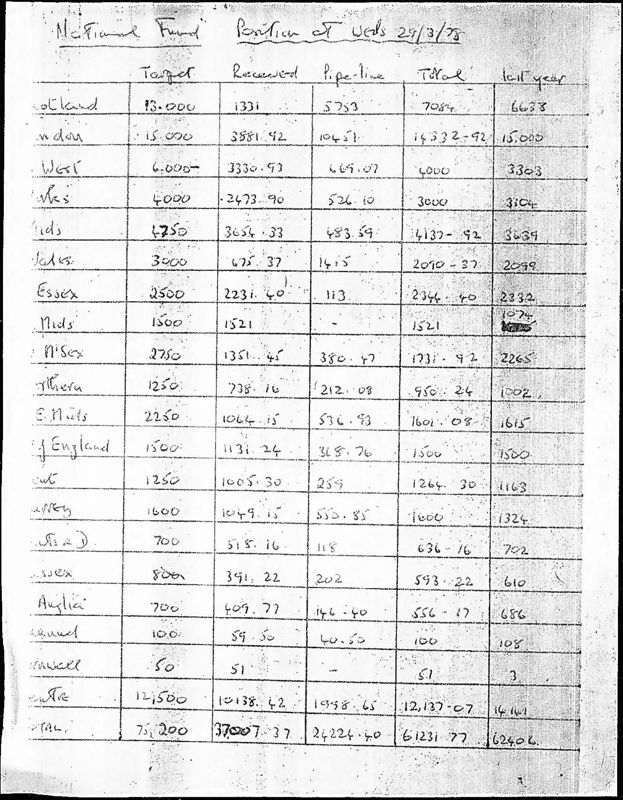 National Fund Position at Weds 29/3/78
Target Received Pipe-line Total last year
otland 13.000 1331 5753 7084 6638
ndon 15.000 3881.92 10451 14332-92 15.000
West 6.000- 3330.93 669.07 4000 3303
rks 4000 2473.90 526.10 3000 3104
ids 4750 3654.33 483.59 4137-92 3639
ales 3000 675.37 1415 2090-37 2099
Essex 2500 2231.40 113 2344.40 2332
Mids 1500 1521 - 1521 1074
M'Sex 2750 1351.45 380.47 1731.92 2265
rthern 1250 738.16 212.08 950.24 1002
E. Mids 2250 1064.15 536.93 1601.08 1615
of England 1500 1131.24 368.76 1500 1500
ent 1250 1005.30 259 1264.30 1163
urrey 1600 1049.15 550.85 1600 1324
nts & D 700 518.16 118 636-16 702
ussex 800 391.22 202 593.22 610
Anglia 700 409.77 146-40 556-17 686
100 59.50 40.50 100 108
rnwall 50 51 - 51 3
entre 12,500 10138.42 1998.65 12,137-07 14141
OTAL 75,200 37007.37 24224.40 61231.77 62406